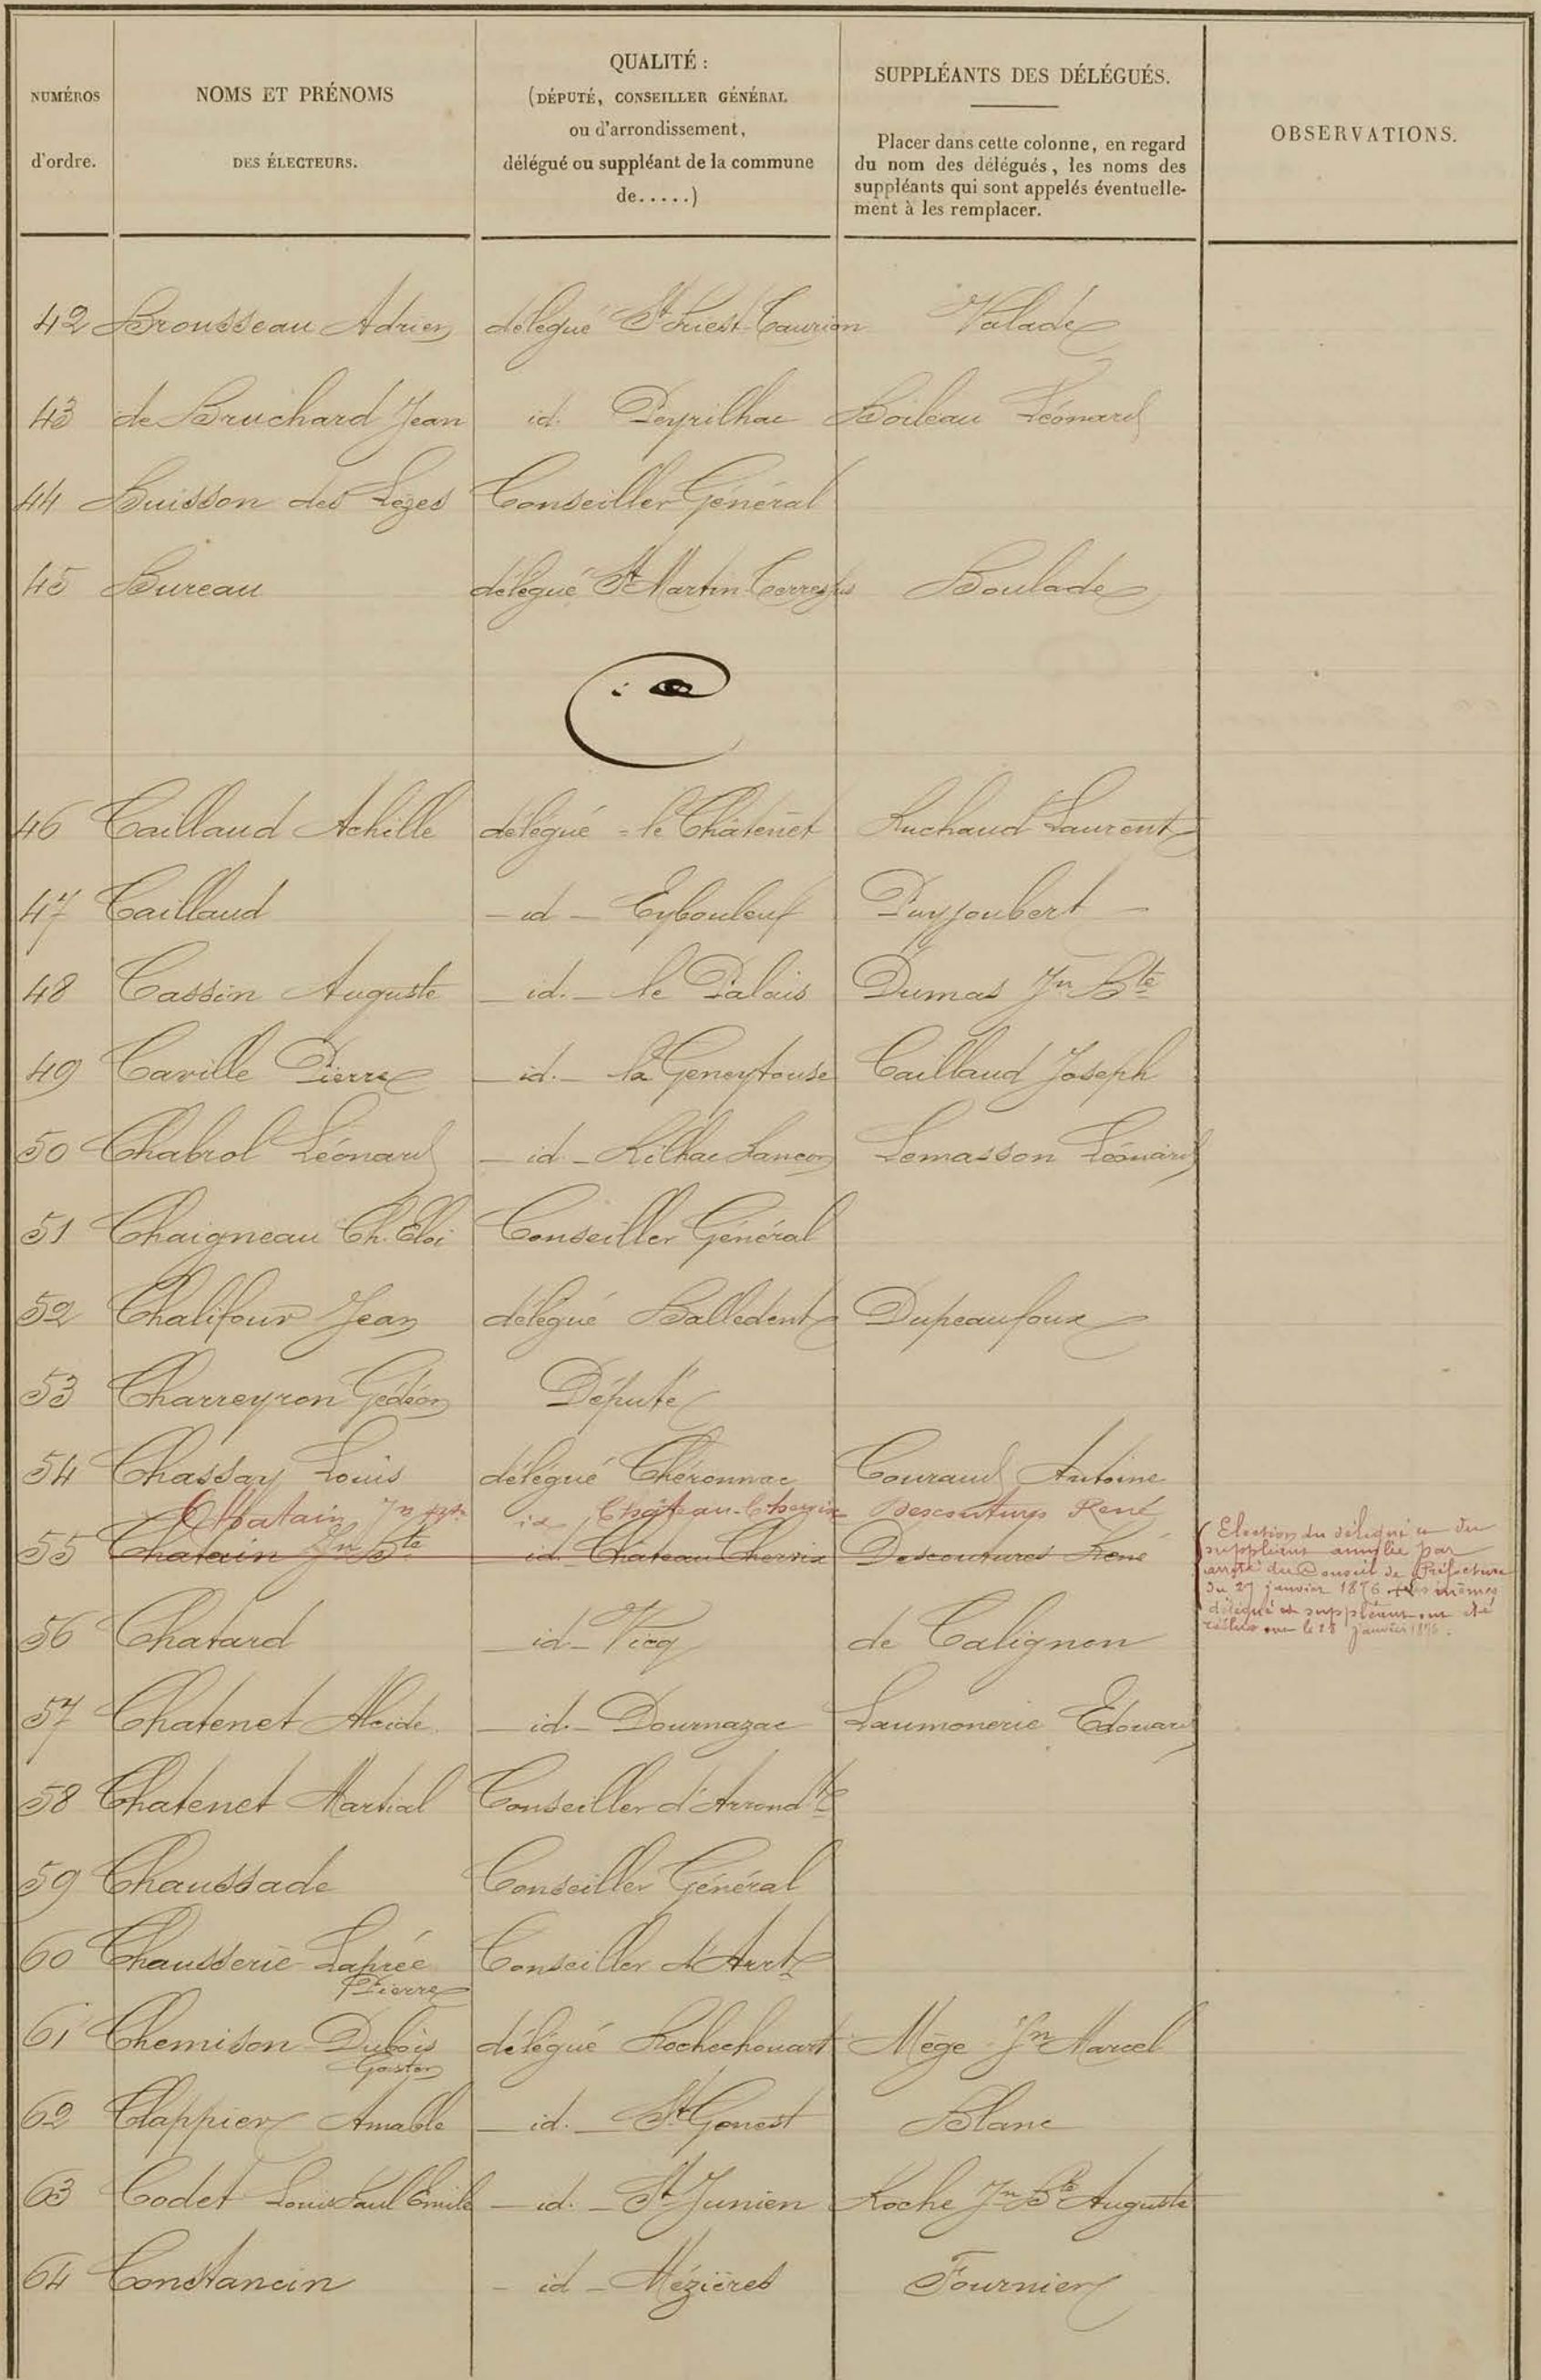 NUMÉROS
d'ordre.
NOMS ET PRÉNOMS
DES ÉLECTEURS.
QUALITÉ :
(DÉPUTÉ, CONSEILLER GÉNÉRAL
ou d'arrondissement,
délégué ou suppléant de la commune
de.....)
SUPPLÉANTS DES DÉLÉGUÉS.
Placer dans cette colonne, en regard
du nom des délégués, les noms des
suppléants qui sont appelés éventuelle-
ment à les remplacer.
OBSERVATIONS.
42 Brousseau Adrien délégué St Priest-Taurion Valade
43 de Bruchard Jean id. Peyrilhac Boileau Léonard
44 Buisson des Lèzes Conseiller Général
45 Bureau délégué St Martin-Terressus Boulade
C
46 Caillaud Achille délégué = le Châtenet Ruchaud Laurent
47 Caillaud - id - Eybouleuf Puyjoubert
48 Cassin Auguste - id. - le Palais Dumas Jn Bte
49 Caville Pierre - id. - la Geneytouse Caillaud Joseph
50 Chabrol Léonard - id - Rilhac Lancon Lemasson Léonard
51 Chaigneau Ch. Eloi Conseiller Général
52 Chalifour Jean délégué Balledent Dupeaufoux
53 Charreyron Gédéon Député
54 Chassay Louis délégué Chéronnac Couraud Antoine
Chatain Jn Bte id Château-Chervix Descoutures René
55 Chatain Jn Bte id. Château Chervix Descoutures René
Election du délégué et du
suppléant annulée par
arrêté du Conseil de Préfecture
du 27 janvier 1876. les mêmes
délégué et suppléant ont été
réélus le 28 janvier 1876.
56 Chatard - id - Vicq de Calignon
57 Chatenet Alcide - id. - Dournazac Laumonerie Edouard
58 Chatenet Martial Conseiller d'Arrondt
59 Chaussade Conseiller Général
60 Chausserie-Laprée Conseiller d'Arrt
Pierre
61 Chemison-Dubois délégué Rochechouart Mège Jn Marcel
Gaston
62 Clappier Amable - id. - St Genest Blanc
63 Codet Louis Paul Emile - id. - St Junien Roche Jn Bte Auguste
64 Constancin - id - Mézières Fournier